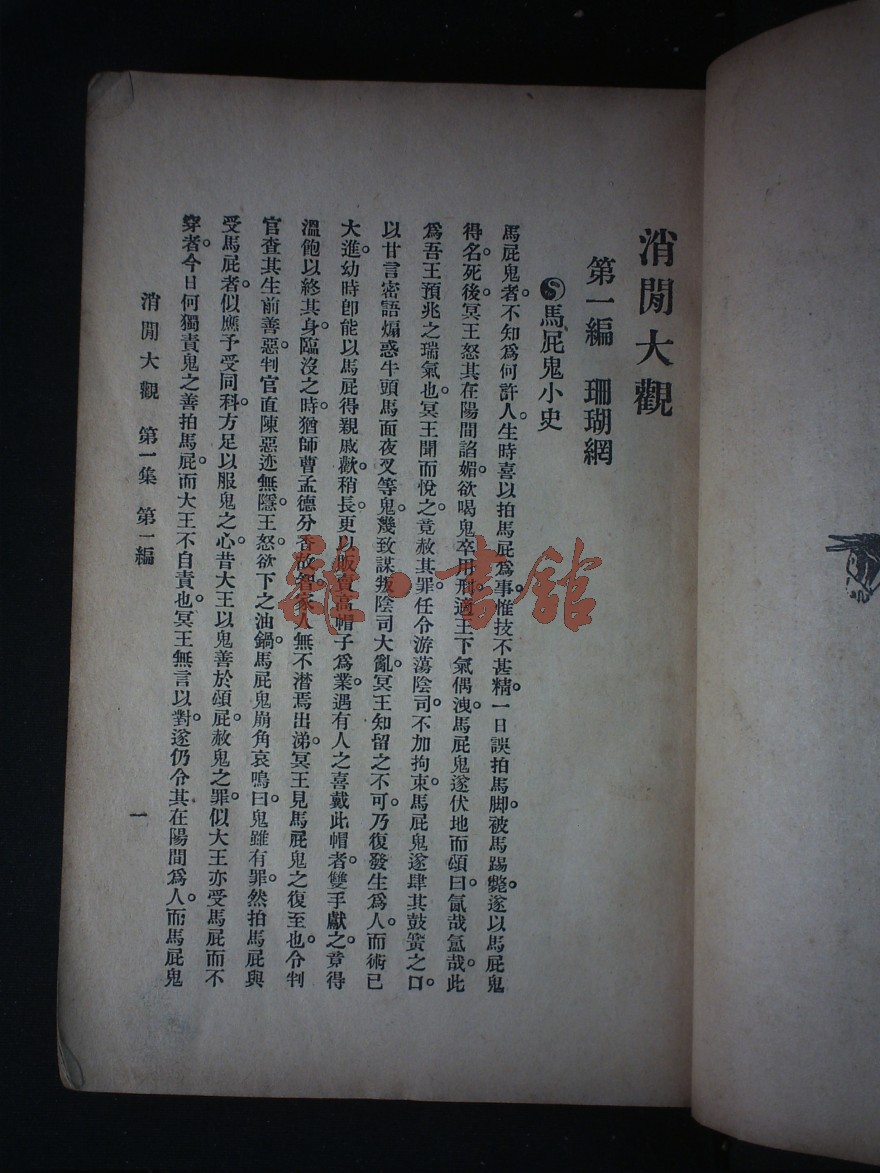 消閒大觀
第一編 珊瑚網
馬屁鬼小史
馬屁鬼者。不知爲何許人。生時喜以拍馬屁爲事。惟技不甚精。一日誤拍馬脚。被馬踢斃。遂以馬屁鬼
得名。死後。冥王怒其在陽間諂媚。欲喝鬼卒用刑。適王下氣偶洩。馬屁鬼遂伏地而頌曰。氤哉氳哉。此
爲吾王預兆之瑞氣也。冥王聞而悅之。竟赦其罪。任令游蕩陰司。不加拘束。馬屁鬼遂肆其鼓簧之口。
以甘言密語。煽惑牛頭馬面夜叉等鬼。幾致謀叛。陰司大亂。冥王知留之不可。乃復發生爲人。而術已
大進。幼時卽能以馬屁得親戚歡。稍長。更以販賣高帽子爲業。遇有人之喜戴此帽者。雙手獻之。竟得
溫飽以終其身。臨沒之時。猶師曹孟德分香故智。家人無不潸焉出涕。冥王見馬屁鬼之復至也。令判
官查其生前善惡。判官直陳惡迹無隱。王怒欲下之油鍋。馬屁鬼崩角哀鳴曰。鬼雖有罪。然拍馬屁與
受馬屁者。似應予受同科。方足以服鬼之心。昔大王以鬼善於頌屁。赦鬼之罪。似大王亦受馬屁而不
穿者。今日何獨責鬼之善拍馬屁。而大王不自責也。冥王無言以對。遂仍令其在陽間爲人。而馬屁鬼
消閒大觀 第一集 第一編
一
雜·書館